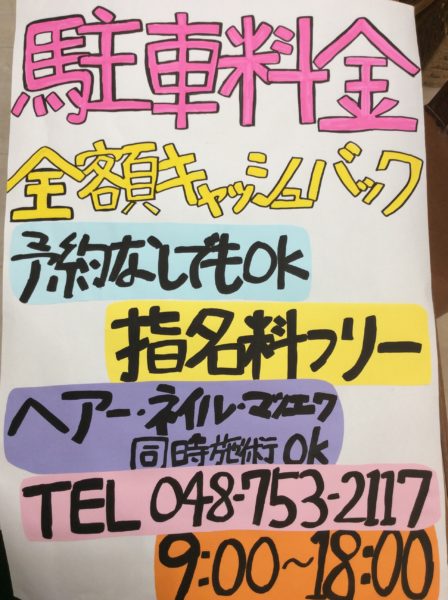 駐車料金
全額キャッシュバック
予約なしでもOK
指名料フリー
ヘアー・ネイル・マツエク
同時施術OK
TEL 048-753-2117
9:00~18:00